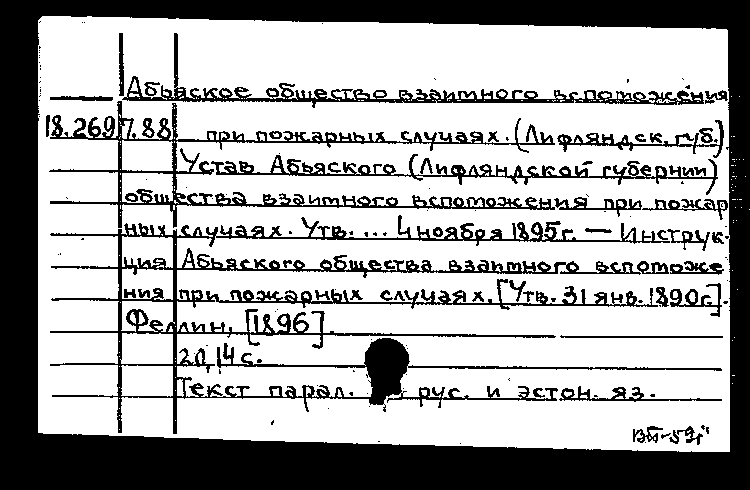 Абьяское общество взаимного вспоможения
18.269 7.88 при пожарных случаях. (Лифляндск. губ.)
Устав Абьяского (Лифляндской губернии)
общества взаимного вспоможения при пожар
ных случаях. Утв. ... 4 ноября 1895 г. — Инструк-
ция Абьяского общества взаимного вспоможе
ния при пожарных случаях. [Утв. 31 янв. 1890 г.].
Феллин, [1896].
20, 14 с.
Текст парал. рус. и эстон. яз.